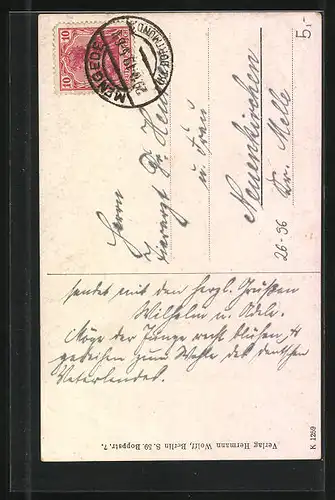 sendet mit den herzl. Grüßen
Wilhelm u. Adele.
Möge der Junge recht blühen u
gedeihen zum Wohle des deutschen
Vaterlandes.
Herrn
Tierarzt Dr.
u. Frau
Neuenkirchen
Kr. Melle
26-96
5,-
10
10
MENGEDE
(BZ. DORTMUND)
Verlag Hermann Wolff, Berlin S. 59. Boppstr. 7.
K 1259